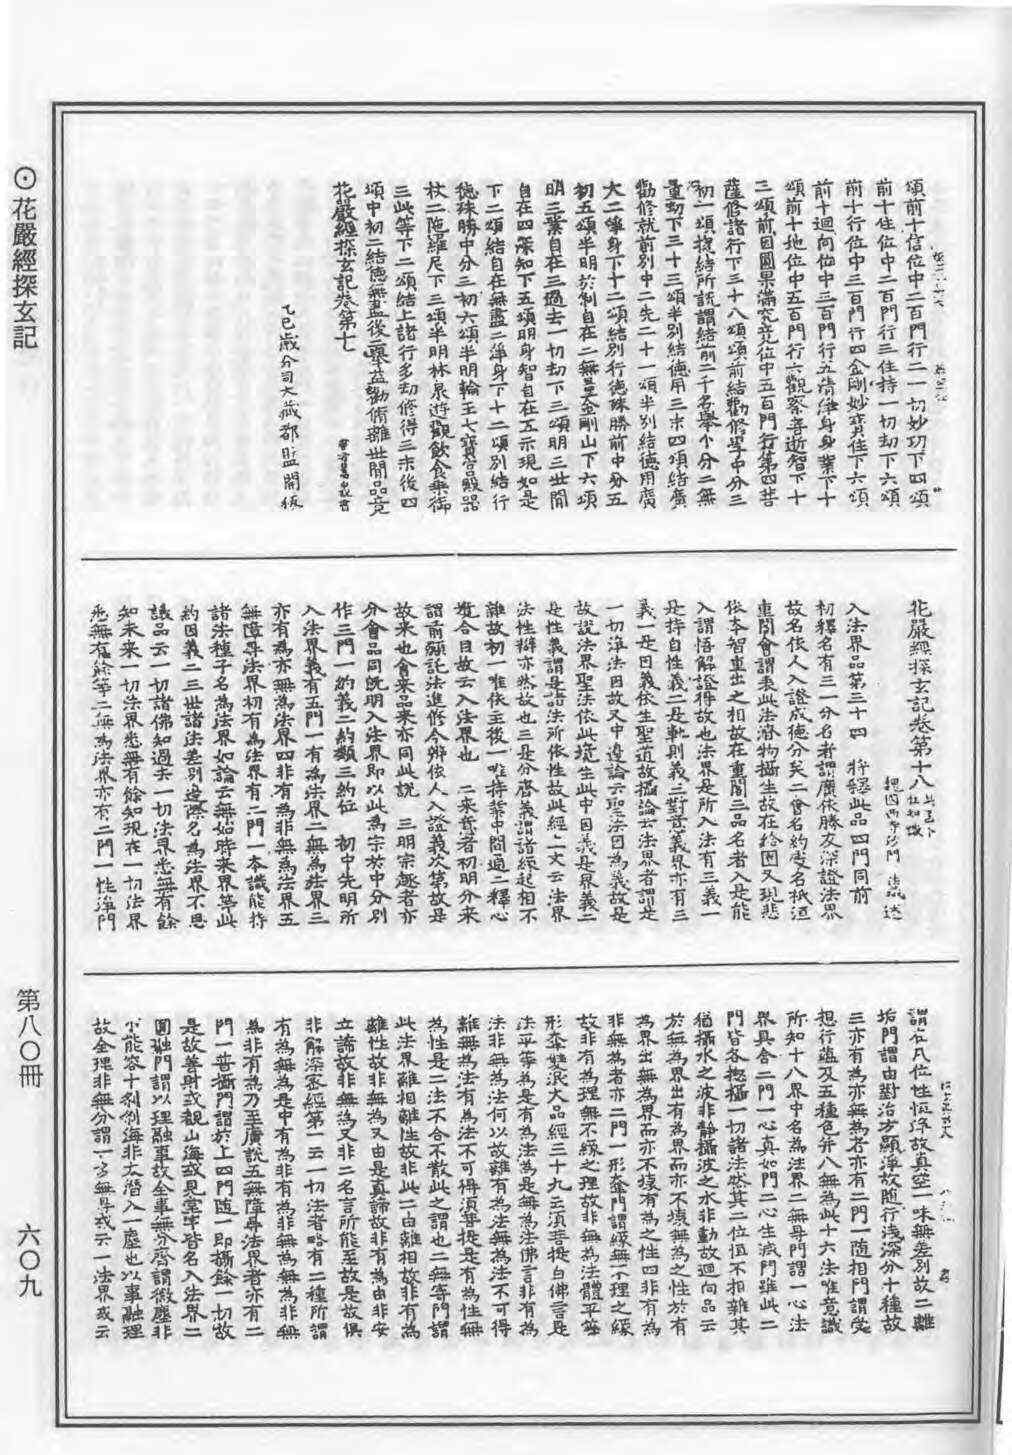 頌前十信位中二百門行二一切妙功下四頌
前十住位中二百門行三住持一切劫下六頌
前十行位中三百門行四金剛妙寶住下六頌
前十迴向位中三百門行五清淨身身業下十
頌前十地位中五百門行六觀察善逝智下十
三頌前因圓果滿究竟位中五百門行第四菩
薩修諸行下三十八頌頌前結勸修學中分三
初一頌捉結所說謂結前二千名舉小分二無
量劫下三十三頌半別結德用三末四頌結廣
勸修就前別中二先二十一頌半別結德用廣
大二淨身下十二頌結別行德殊勝前中分五
初五頌半明於制自在二無量金剛山下六頌
明三業自在三過去一切劫下三頌明三世間
自在四深知下五頌明身智自在五示現如是
下二頌結自在無盡二淨身下十二頌別結行
德殊勝中分三初六頌半明輪王七寶宮殿器
杖二陁羅尼下三頌半明林泉遊觀飲食乘御
三此等下二頌結上諸行多劫修得三末後四
頌中初二結德無盡後二舉益勸脩離世間品竟
花嚴經探玄記卷第十七
乙巳歲分司大藏都監開板
花嚴經探玄記卷第十八
魏國西寺沙門 法藏 述
入法界品第三十四 將釋此品四門同前
初釋名有三一分名者謂廣依勝友深證法界
故名依人入證成德分矣二會名約處名祇洹
重閣會謂表此法濟物攝生故在給園又現悲
依本智重出之相故在重閣三品名者入是能
入謂悟解證得故也法界是所入法有三義一
是持自性義二是軌則義三對意義界亦有三
義一是因義依生聖道故攝論云法界者謂是
一切淨法因故又中邊論云聖法因為義故是
故說法界聖法依此境生此中因義是界義二
是性義謂是諸法所依性故此經上文云法界
法性辯亦然故也三是分齊義謂諸緣起相不
雜故初一唯依主後一唯持業中間通二釋心
境合目故云入法界也 二來意者初明分來
謂前顯託法進修今辨依人入證義次第故是
故來也會來品來亦同此說 三明宗趣者亦
分會品同既明入法界即以此為宗於中分別
作三門一約義二約類三約位 初中先明所
入法界義有五門一有為法界二無為法界三
亦有為亦無為法界四非有為非無為法界五
無障㝵法界初有為法界有二門一本識能持
諸法種子名為法界如論云無始時來界等此
約因義二三世諸法差別邊際名為法界不思
議品云一切諸佛知過去一切法界悉無有餘
知未來一切法界悉無有餘知現在一切法界
悉無有餘等二無為法界亦有二門一性淨門
謂在凡位性恒淨故真空一味無差別故二離
垢門謂由對治方顯淨故隨行淺深分十種故
三亦有為亦無為者亦有二門一隨相門謂受
想行蘊及五種色并八無為此十六法唯意識
所知十八界中名為法界二無㝵門謂一心法
界具含二門一心真如門二心生滅門雖此二
門皆各揔攝一切諸法然其二位恒不相雜其
猶攝水之波非靜攝波之水非動故迴向品云
於無為界出有為界而亦不壞無為之性於有
為界出無為界而亦不壞有為之性四非有為
非無為者亦二門一形奪門謂緣無不理之緣
故非有為理無不緣之理故非無為法體平等
形奪雙泯大品經三十九云須菩提白佛言是
法平等為是有為法為是無為法佛言非有為
法非無為法何以故離有為法無為法不可得
離無為法有為法不可得須菩提是有為性無
為性是二法不合不散此之謂也二無寄門謂
此法界離相離性故非此二由離相故非有為
離性故非無為又由是真諦故非有為由非安
立諦故非無為又非二名言所能至故是故俱
非解深密經第一云一切法者略有二種所謂
有為無為是中有為非有為非無為無為非無
為非有為乃至廣說五無障㝵法界者亦有二
門一普攝門謂於上四門隨一即攝餘一切故
是故善財或覩山海或見堂宇皆名入法界二
圓融門謂以理融事故全事無分齊謂微塵非
小能容十剎剎海非大潛入一塵也以事融理
故全理非無分謂一多無㝵或云一法界或云
⊙花嚴經探玄記
第八〇冊
六〇九